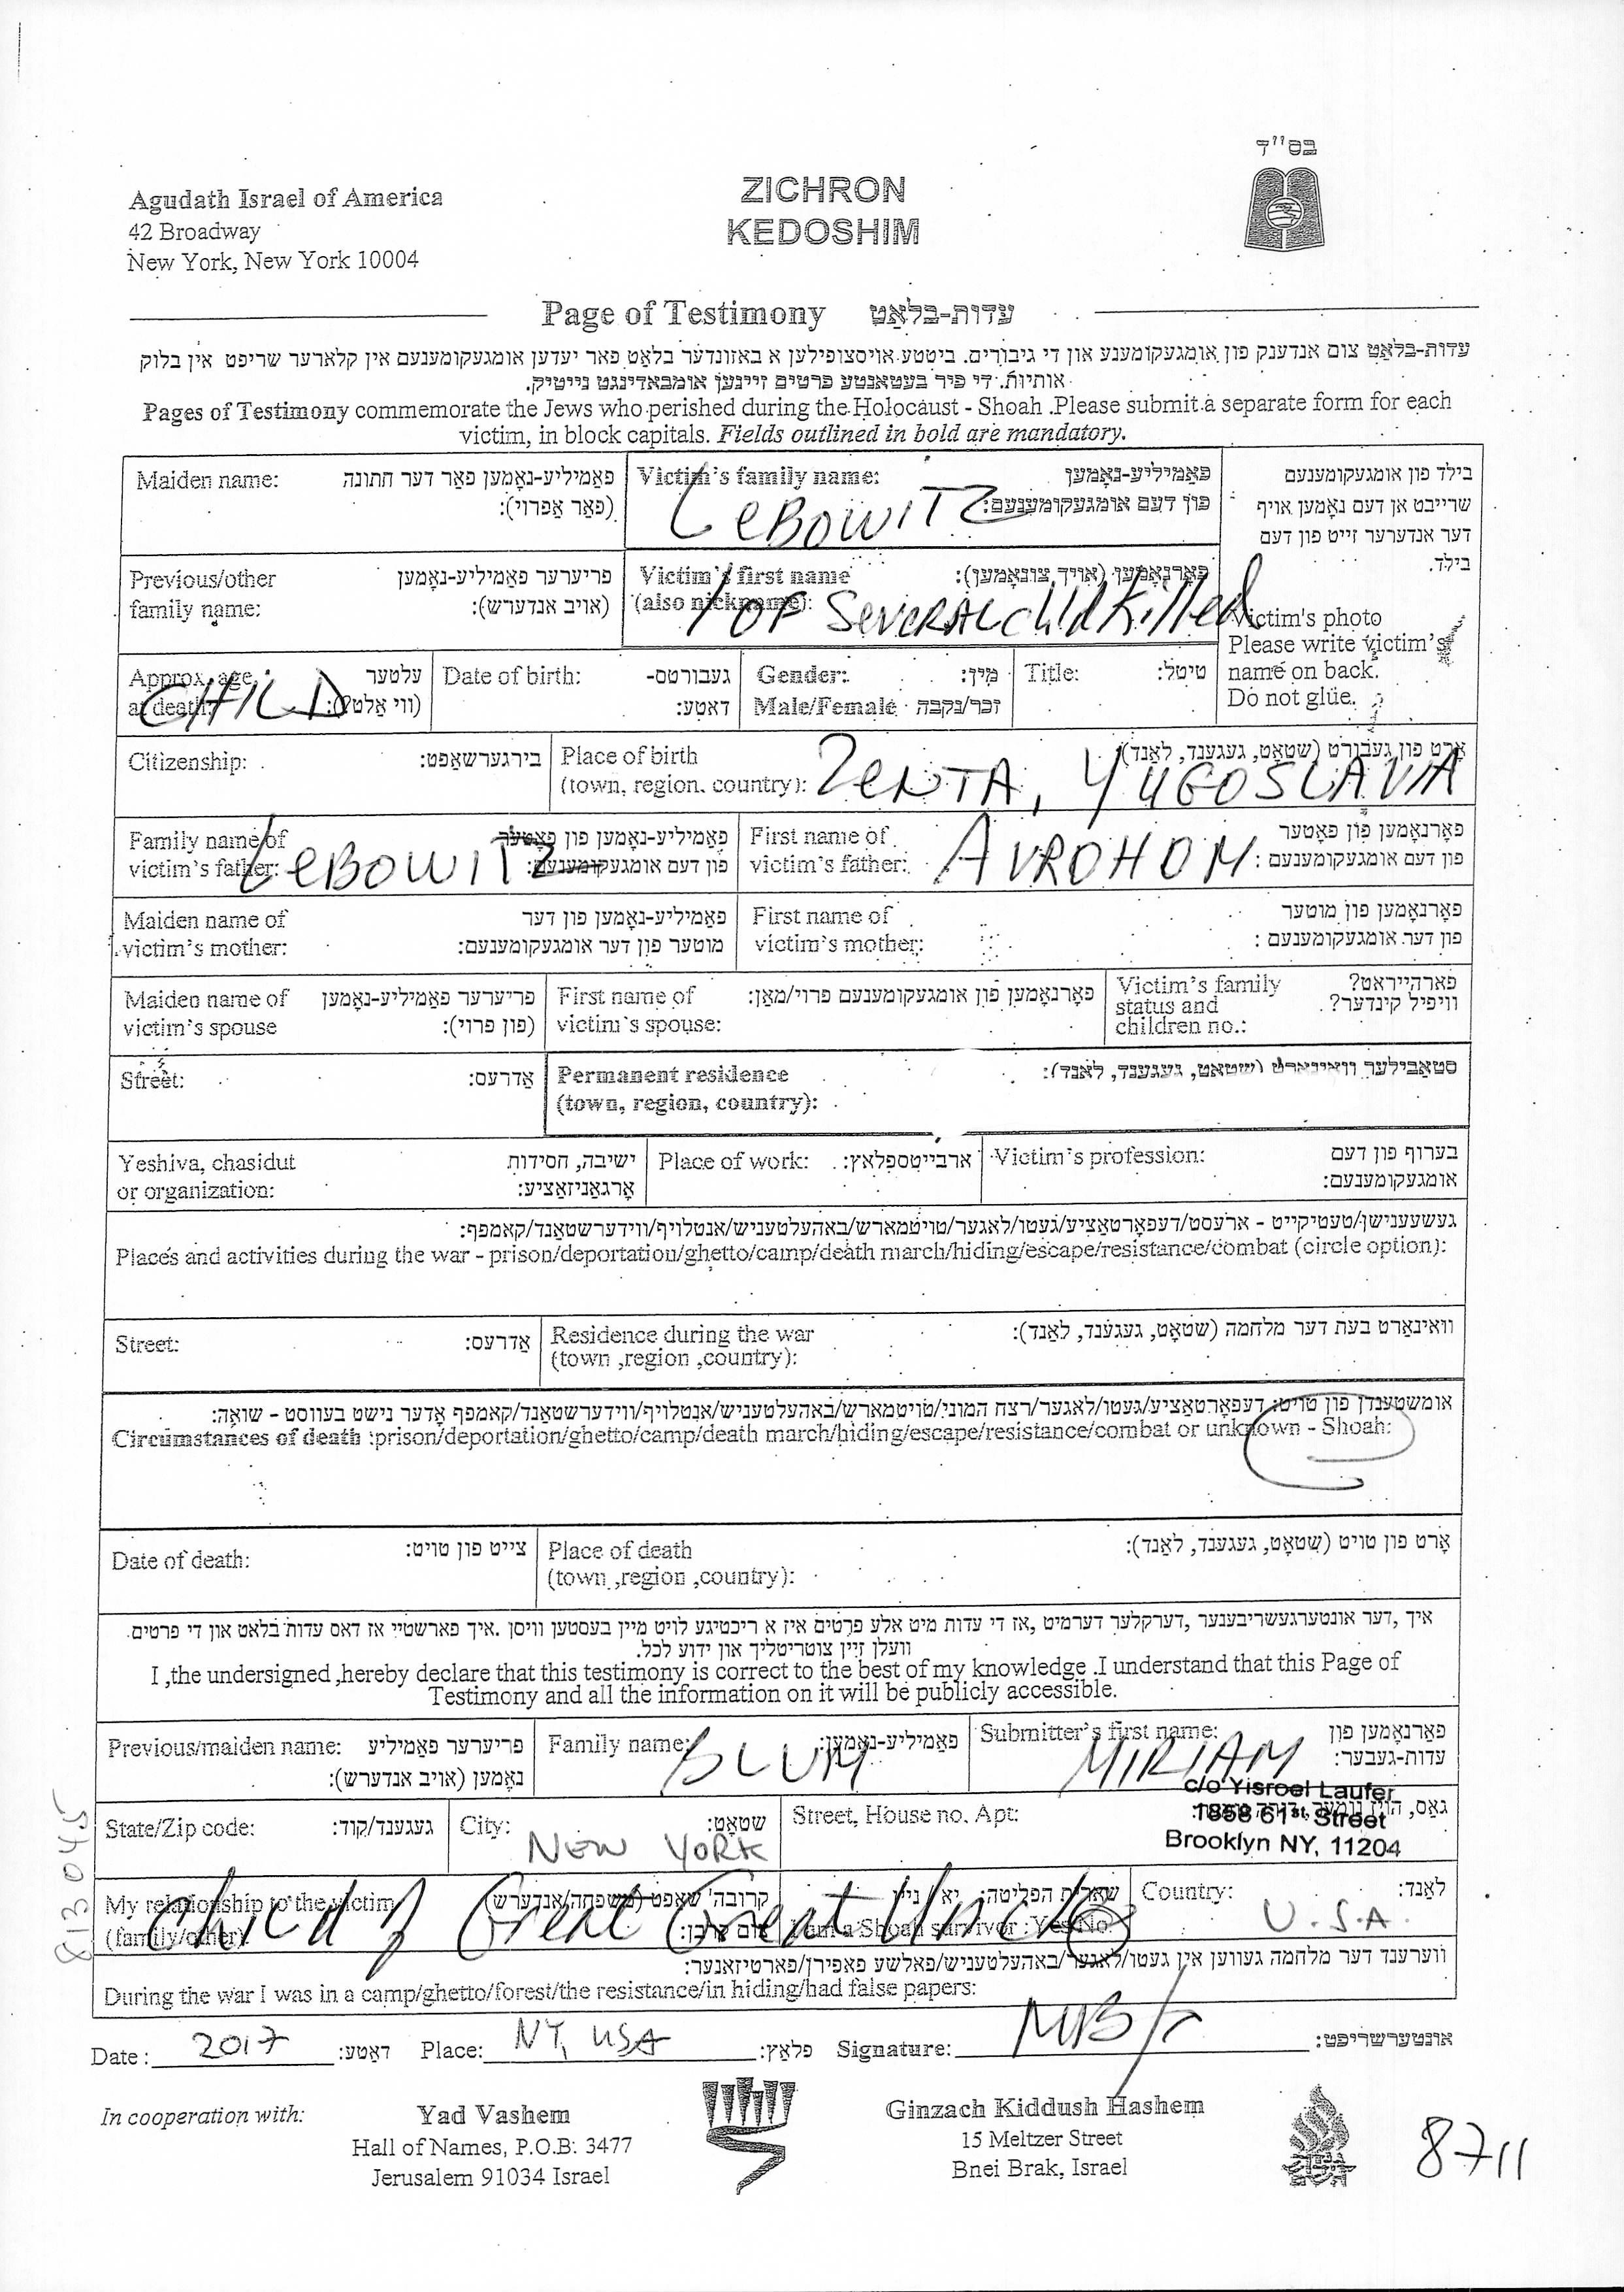 בס"ד
Agudath Israel of America
42 Broadway
New York, New York 10004
ZICHRON
KEDOSHIM
Page of Testimony עדות-בלאַט
עדות-בלאַט צום אנדענק פון אומגעקומענע און די גיבורים. ביטטע אויסצופילען א באזונדער בלאַט פאר יעדען אומגעקומענעם אין קלארער שריפט אין בלוק
אותיות. די פיר בעטאנטע פרטים זיינען אומבאדינגט נייטיק.
Pages of Testimony commemorate the Jews who perished during the Holocaust - Shoah .Please submit a separate form for each
victim, in block capitals. Fields outlined in bold are mandatory.
Maiden name: פאַמיליע-נאָמען פאר דער חתונה
(פאר אַפרוי):
Victim's family name: פאַמיליע-נאָמען
פון דעם אומגעקומענעם:
LeBOWITZ
בילד פון אומגעקומענעם
שרייבט אן דעם נאָמען אויף
דער אנדערער זייט פון דעם
בילד.
Victim's photo
Please write victim's
name on back.
Do not glue.
Previous/other פריערער פאַמיליע-נאָמען
family name: (אויב אנדערש):
Victim's first name פאָרנאָמען (אויך צונאָמען):
(also nickname):
1 OF SeveRAL child Killed
Approx. age עלטער
at death: (ווי אַלט?):
CHILD
Date of birth: געבורטס-
דאַטע:
Gender: מין:
Male/Female זכר/נקבה
Title: טיטל:
Citizenship: בירגערשאַפט:
Place of birth אָרט פון געבורט (שטאָט, געגענד, לאַנד)
(town, region, country):
ZeNTA, YUGOSLAVIA
Family name of פאַמיליע-נאָמען פון פאָטער
victim's father: פון דעם אומגעקומענעם:
LeBOWITZ
First name of פאָרנאָמען פון פאָטער
victim's father: פון דעם אומגעקומענעם:
AVROHOM
Maiden name of פאַמיליע-נאָמען פון דער
victim's mother: מוטער פון דער אומגעקומענעם:
First name of פאָרנאָמען פון מוטער
victim's mother: פון דער אומגעקומענעם:
Maiden name of פריערער פאַמיליע-נאָמען
victim's spouse (פון פרוי):
First name of פאָרנאָמען פון אומגעקומענעם פרוי/מאַן:
victim's spouse:
Victim's family פארהייראט?
status and וויפיל קינדער?
children no.:
Street: אַדרעס:
Permanent residence סטאַבילער וואוינארט (שטאָט, געגענד, לאַנד):
(town, region, country):
Yeshiva, chasidut ישיבה, חסידות
or organization: אָרגאַניזאַציע:
Place of work: ארבייטספלאץ:
Victim's profession: בערוף פון דעם
אומגעקומענעם:
געשעענישן/טעטיקייט - ארעסט/דעפאָרטאַציע/געטו/לאגער/טויטמארש/באהעלטעניש/אנטלויף/ווידערשטאַנד/קאמפף:
Places and activities during the war - prison/deportation/ghetto/camp/death march/hiding/escape/resistance/combat (circle option):
Street: אַדרעס:
Residence during the war וואוינארט בעת דער מלחמה (שטאָט, געגענד, לאַנד):
(town ,region ,country):
אומשטענדן פון טויט: דעפאָרטאַציע/געטו/לאגער/רצח המוני/טויטמארש/באהעלטעניש/אנטלויף/ווידערשטאַנד/קאמפף אָדער נישט בעוואוסט - שואה:
Circumstances of death :prison/deportation/ghetto/camp/death march/hiding/escape/resistance/combat or unknown - Shoah:
Date of death: צייט פון טויט:
Place of death אָרט פון טויט (שטאָט, געגענד, לאַנד):
(town ,region ,country):
איך ,דער אונטערגעשריבענער ,דערקלער דערמיט ,אז די עדות מיט אלע פרטים איז א ריכטיגע לויט מיין בעסטען וויסן .איך פארשטיי אז דאס עדות בלאט און די פרטים
וועלן זיין צוטריטליך און ידוע לכל.
I ,the undersigned ,hereby declare that this testimony is correct to the best of my knowledge .I understand that this Page of
Testimony and all the information on it will be publicly accessible.
Previous/maiden name: פריערער פאַמיליע
נאָמען (אויב אנדערש):
Family name: פאַמיליע-נאָמען:
BLUM
Submitter's first name: פאָרנאָמען פון
עדות-געבער:
MIRIAM
State/Zip code: געגענד/קוד:
City: שטאָט:
NEW YORK
Street, House no. Apt:
c/o Yisroel Laufer
1858 61st Street
Brooklyn NY, 11204
My relationship to the victim
(family/other):
I am a Shoah survivor :Yes/No
Child of Great Great Uncle
Country: לאַנד:
U.S.A.
ווערענד דער מלחמה געווען אין געטו/לאגער/באהעלטעניש/פאלשע פאפירן/פארטיזאנער:
During the war I was in a camp/ghetto/forest/the resistance/in hiding/had false papers:
Date : 2017 דאַטע: Place: NY, USA פלאַץ: Signature: אונטערשריפט:
In cooperation with:
Yad Vashem
Hall of Names, P.O.B: 3477
Jerusalem 91034 Israel
Ginzach Kiddush Hashem
15 Meltzer Street
Bnei Brak, Israel
8711
813045